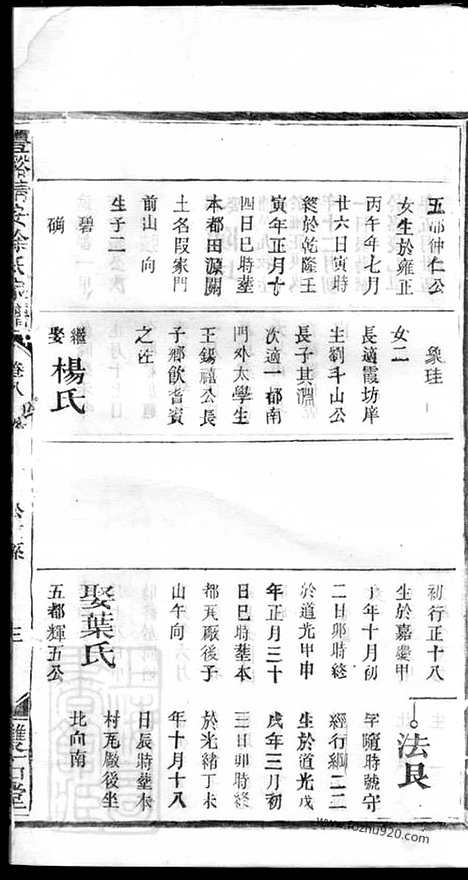 五都仲仁公
女生於雍正
丙午年七月
廿六日寅時
終於乾隆壬
寅年正月十
四日巳時塟
本都田源關
土名叚家門
前山 向
生子二公
碧
象珪
女二
長適霞坊庠
生劉斗山公
長子其淵
次適一都南
門外太學生
王錫禧公長
子鄉飲耆賓
繼娶楊氏
初行正十八
生於嘉慶甲
年十月初
二日卯時終
於道光甲申
年正月三十
日巳時塟本
都瓦廠後子
山午向
娶葉氏
五都輝五公
法良
字隨時號守
經行綱二二
生於道光戊
戌年三月初
三日卯時終
於光緒丁未
年十月十八
日辰時塟本
村瓦廠後坐
北向南
卷八
三
雙石堂
www.fozhu920.com